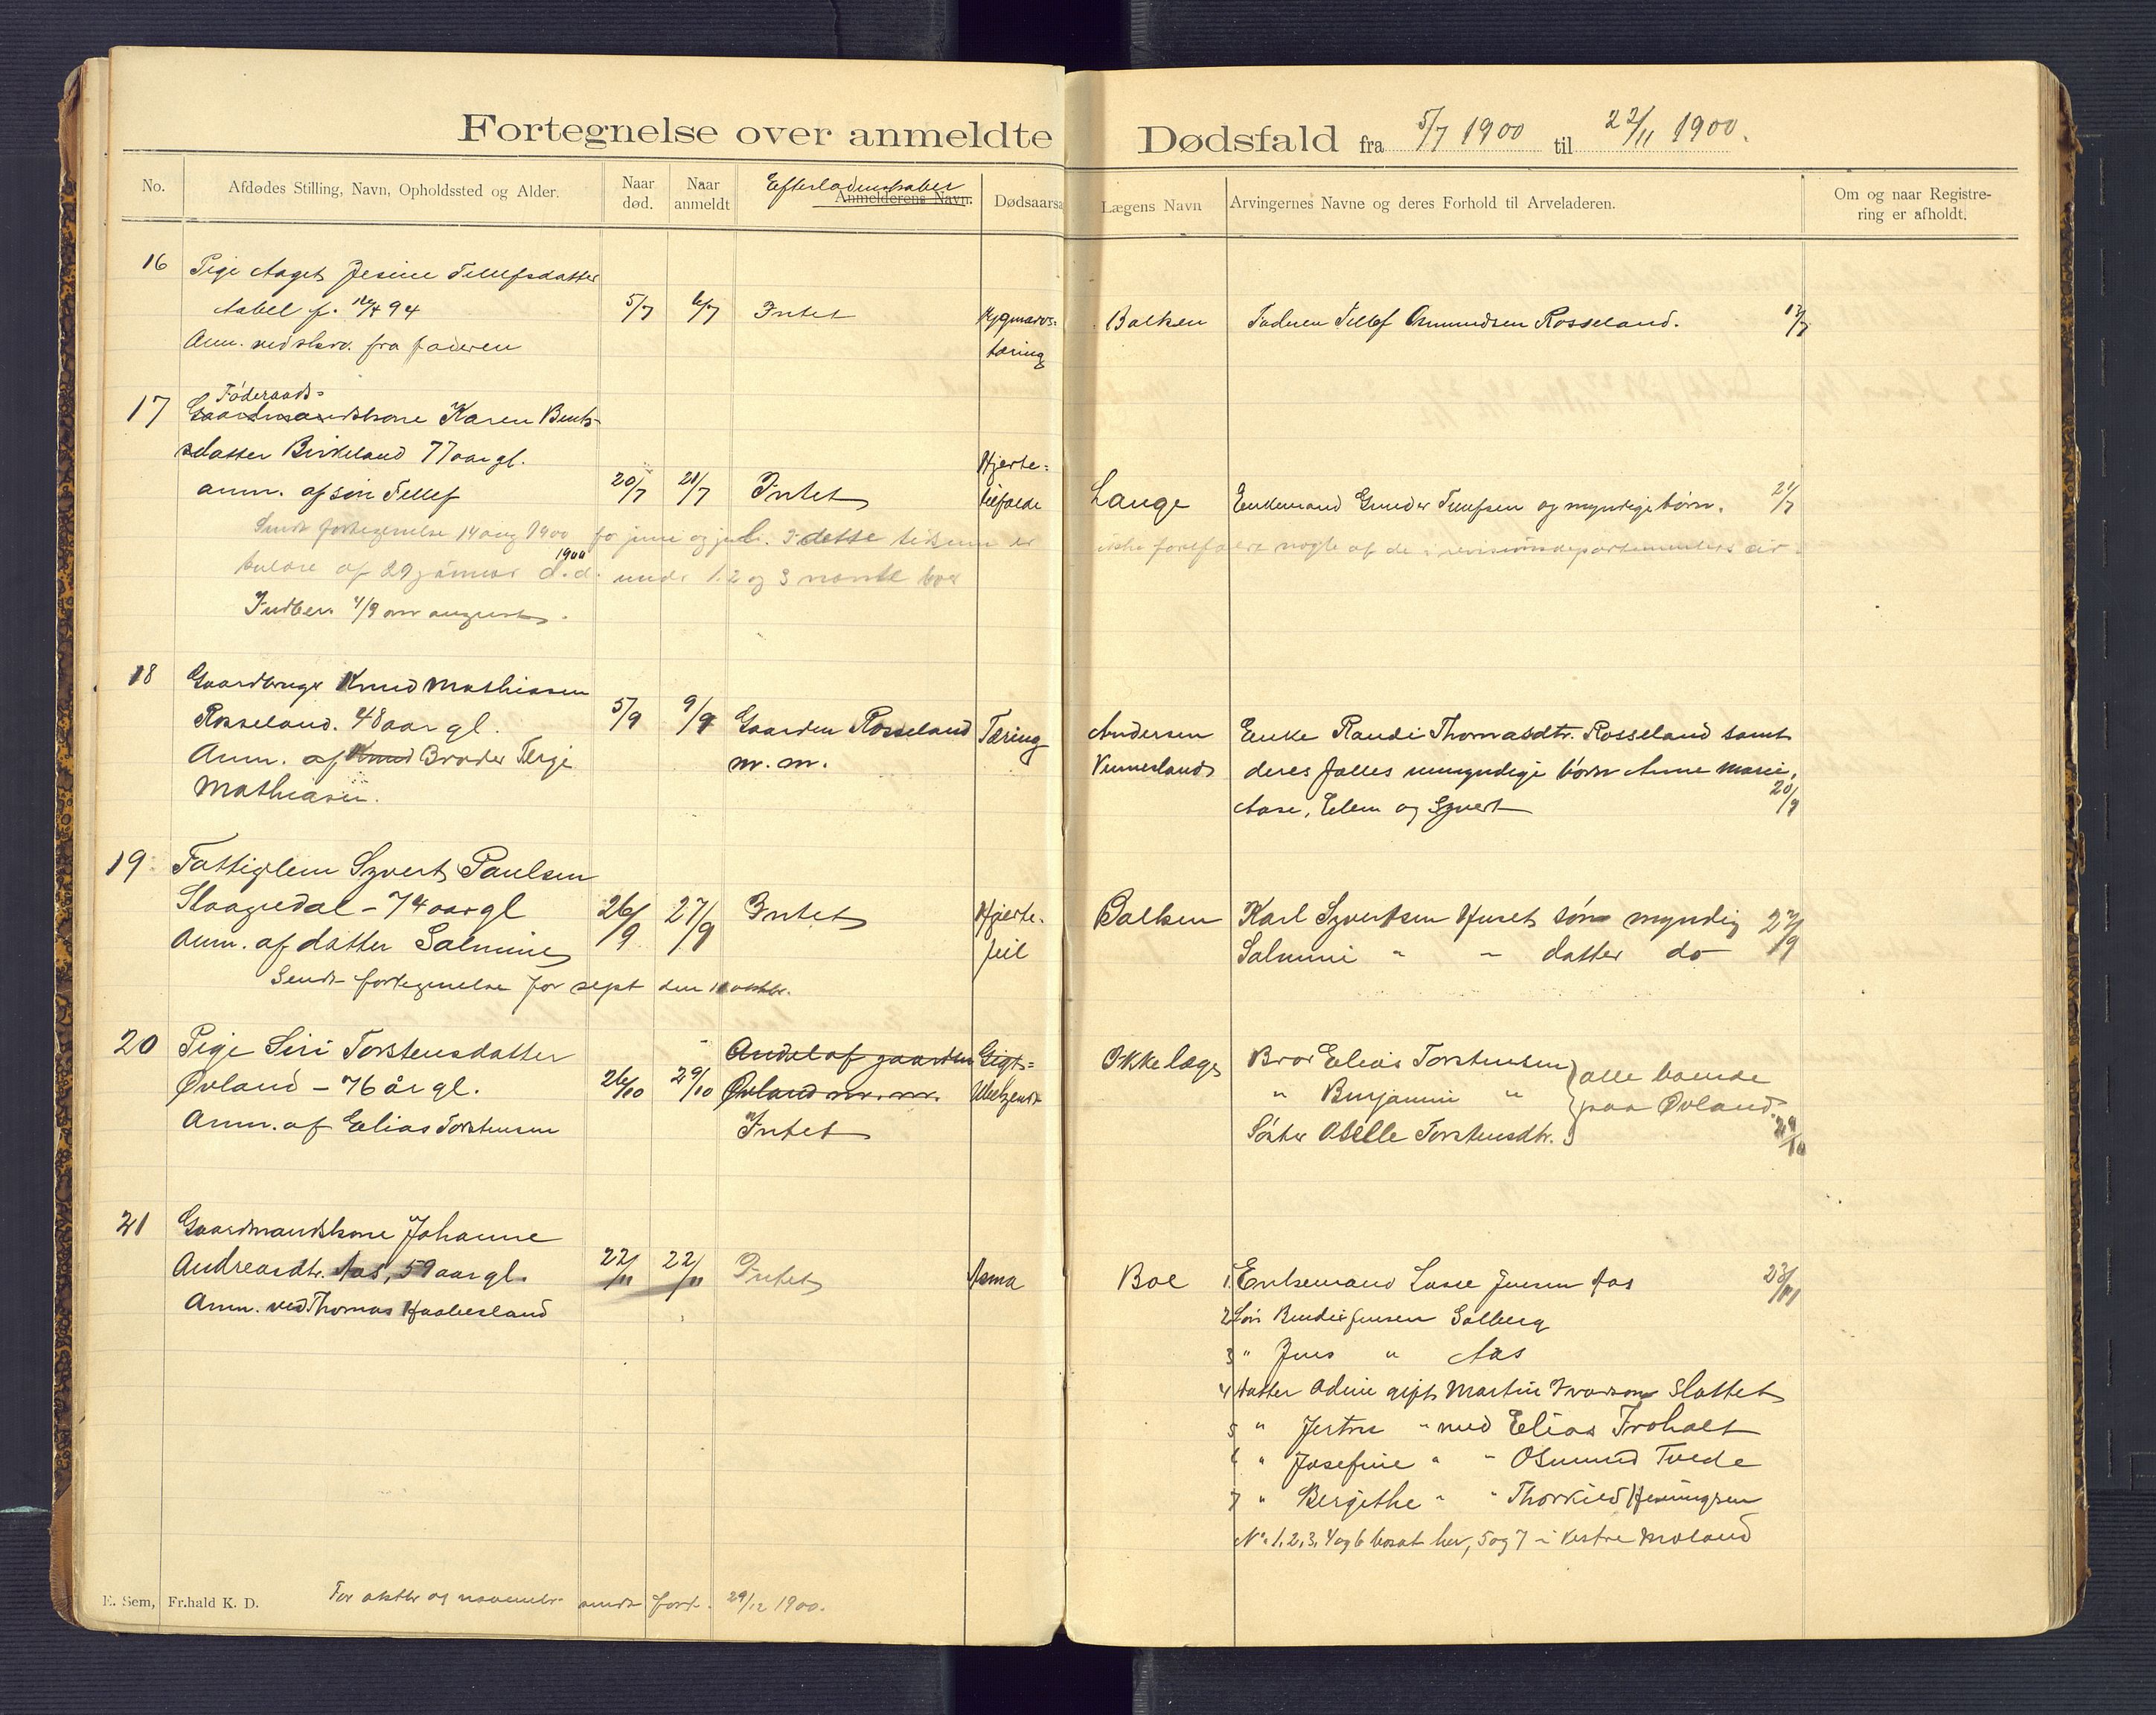 Fortegnelse over anmeldte Dødsfald fra 5/7 1900 til 22/11 1900.
No. Afdødes Stilling, Navn, Opholdssted og Alder. Naar død. Naar anmeldt Efterladenskaber Anmelderens Navn. Dødsaarsa Lægens Navn Arvingernes Navne og deres Forhold til Arveladeren. Om og naar Registrering er afholdt.
16 Pige Aaget Jesine Tellefsdatter
Aabel f. 94 5/7 6/7 Intet Rygmarvs- Balken Faderen Tellef Osmundsen Rosseland. 17/7
Anm. ved skrv. fra faderen tæring
Føderaads-
17 Gaardmandskone Karen Bents-
datter Birkeland 77 aar gl. Hjerte-
anm. af søn Tellef 20/7 21/7 Intet tilfælde Lauge Enkemand Gunder Tellefsen og myndige børn. 21/7
Sendt fortegnelse 14 aug 1900 for juni og juli. I dette tidsrum er ikke forefaldt nogle af de i revisionsdepartementets cir-
kulære af 29 januar 1900 d.d. under 1. 2 og 3 nævnte
Indber. 4/9 over august.
18 Gaardbruger Knud Mathiasen
Rosseland. 48 aar gl. 5/9 9/9 Gaarden Rosseland Tæring Andersen Enke Randi Thomasdtr. Rosseland samt
Anm. af Knud Broder Terje m.m. Vennesland deres fælles umyndige børn Anne Marie,
Mathiasen. Aase, Elen og Syvert 20/9
19 Fattiglem Syvert Paulsen
Slaagedal - 74 aar gl 26/9 27/9 Intet Hjerte- Balken Karl Syvertsen Huset søn myndig 27/9
Anm. af datter Salmine feil Salmine " - datter do
Sendt fortegnelse for sept den 1 oktbr.
20 Pige Siri Torstensdatter Andel af gaarden Gigt- Ikke læge Bror Elias Torstensen } alle boende
Øvland - 76 år gl. 26/10 29/10 Øvland m.m. " Benjamin " paa Øvland.
Anm. af Elias Torstensen Intet Søster Aselle Torstensdtr. 29/10
21 Gaardmandskone Johanne
Andreasdtr. Aas, 59 aar gl. 22/11 22/11 Intet Asma Boe 1. Enkemand Lasse Jensen Aas 23/11
Anm. ved Thomas Haabesland 2 Søn Bendix Jensen Solberg
3 " Jens " Aas
4 Datter Odine gift Martin Ivarson Slottet
5 " Jertru " med Elias Froholt
6 " Josefine " " Osmund Tvede
7 " Bergithe " " Thorkild Henningsen
No. 1, 2, 3, 4 og 6 bosat her, 5 og 7 i Vestre Moland
E. Sem, Fr.hald K. D. For oktbr og novembr sendt fort. 29/12 1900.